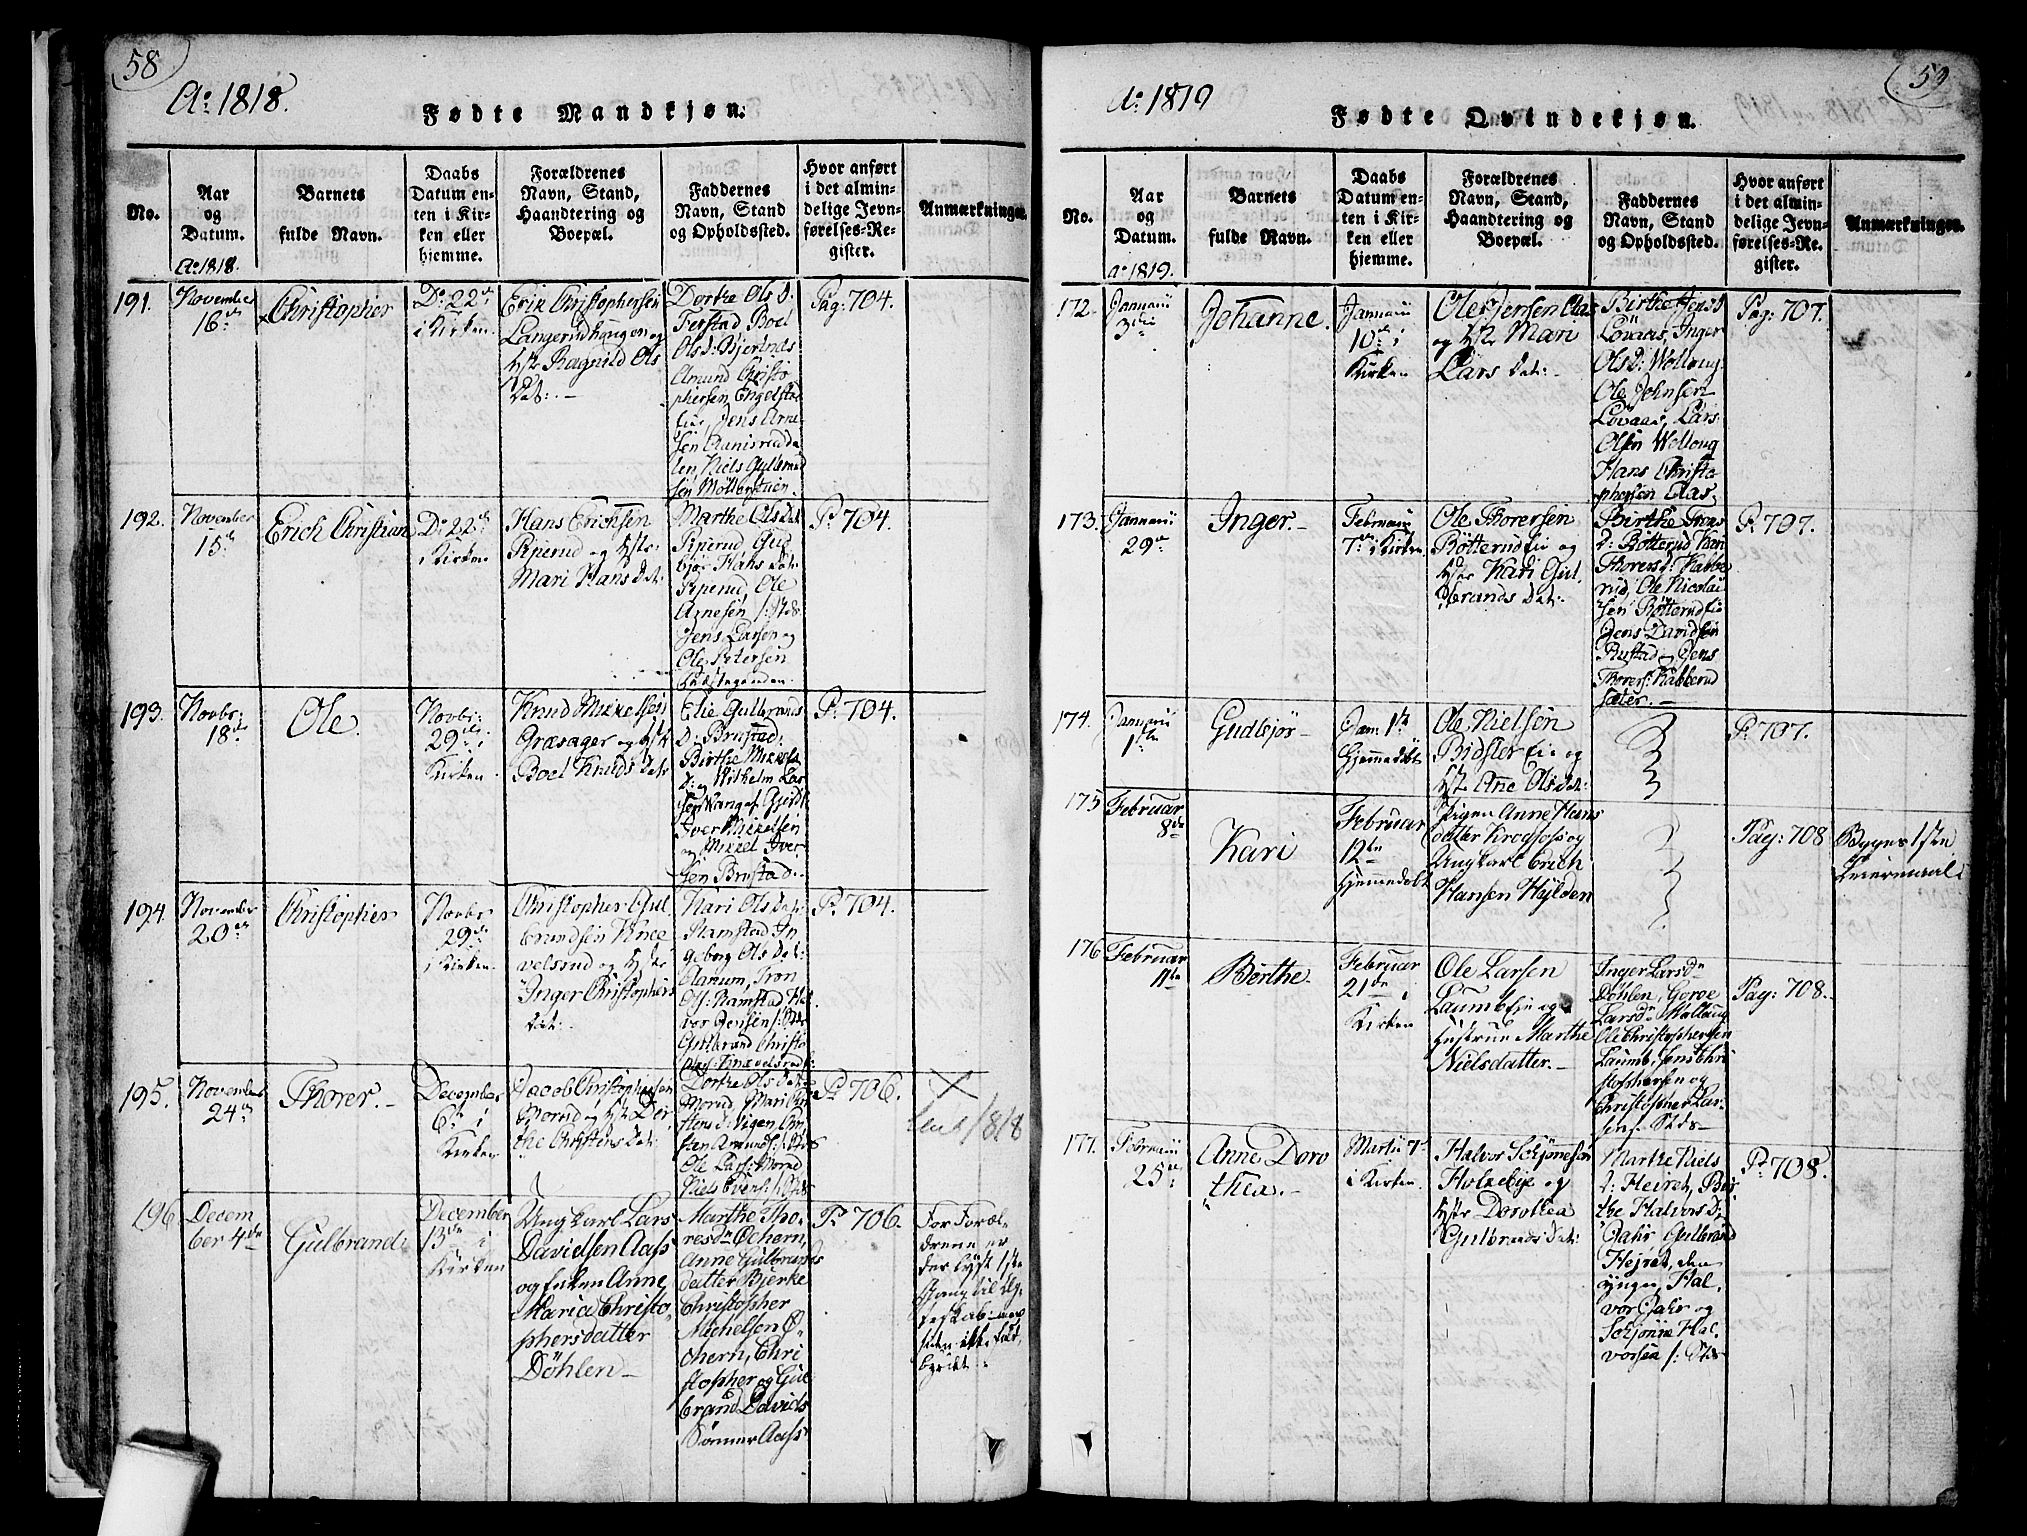 58
Ao 1818.
Fødte Mandkjøn.
No.
Aar og Datum.
Barnets fulde Navn.
Daabs Datum enten i Kirken eller hjemme.
Forældrenes Navn, Stand, Haandtering og Boepæl.
Faddernes Navn, Stand og Opholdssted.
Hvor anført i det almindelige Jevnførelses-Register.
Anmærkninger.
Ao 1818.
191.
November
16de
Christopher
Do 22de
i Kirken
Erik Christophersen
Langerudhougen og
Hstr Ragnild Ols
Dat:
Dorthe Ols D:
Boel
Ols D:
Amund Christo
phersen Engelstad
Eie, Jens Arne
sen
len, Niels Gulbrand
sen
Pag: 704.
192.
November
15de
Erich Christian
Do 22de
i Kirken
Hans Erichsen
Piperud og Hstr:
Mari Hans Dat:
Marthe Ols Dat:
Piperud, Gud
bjør Hans Dat:
Piperud, Ole
Arnesen /: Stds
Jens Larsen og
Ole Petersen
P: 704.
193.
Novbr:
18de
Ole
Novbr:
29de i
Kirken
Knud Mikkelsen
Græsager og Hstr
Boel Knuds Datr
Elie Gulbrands
D: Brustad,
Birthe Mikkels
d: og Wilhelm Lar
sen
Iver Mikkelsen
og Mikkel Iver
sen Brustad.
P: 704.
194.
November
20de
Christopher
Novbr
29de
i Kirken
Christopher Gul
brandsen Knee
velsrud og Hstr
Inger Christophers
Dat:
Kari Ols Dat:
Ramstad In
geborg Ols Dat:
Ols: Ramstad Hal
vor Jensen /: Stds
Gulbrand Christo
P: 704.
195.
November
24de
Thorer.
December
6te i
Kirken
Jacob Christophersen
Morud og Hstr Dor
the
Dorthe Ols Dat:
Morud, Mari
Ole Lars: Morud
Niels Evens: /: Stds
P: 706.
X
1818
196
Decem
ber 4de
Gulbrand
December
13de i
Kirken
Ung Karl Lars
Davidsen Aass
og Pigen Anne
Maria Christo
phersdatter
Döhlen
Marthe Tho
resdr Ochern,
Anne Gulbrands
datter Bjerke
Christopher
Michelsen O
chern, Chri
stopher og Gul
brand Davids
Sønner Aass
P: 706.
For Foræl
drene er
der lyst 1ste
Gang til Æg
teskab men
siden ikke fort
59
Ao 1819
Fødte Qvindekjøn.
No.
Aar og Datum.
Barnets fulde Navn.
Daabs Datum enten i Kirken eller hjemme.
Forældrenes Navn, Stand, Haandtering og Boepæl.
Faddernes Navn, Stand og Opholdssted.
Hvor anført i det almindelige Jevnførelses-Register.
Anmærkninger.
ao 1819.
172.
Januarii
3die
Johanne.
Januarii
10de i
Kirken
Ole Jensen Aas
og Hstr Mari
Lars Dat:
Birthe Jens D
Lövaas, Inger
Ols D: Wolloug
Ole Johnsen
Lövaas, Lars
Olsen Wolloug
Hans Christo
phersen Aas
Pag: 707.
173.
Januarii
29de
Inger.
Februarii
7de i Kirken
Ole Thorersen
Rötterud Eie og
Hstr Kari Gul
brands Dat:
Birthe
D: Rötterud Kari
Thorers D: Kabbe
rud, Ole Nicolai
sen Rötterud Eie
Jens Davidsen
Rustad og Jens
Thorers: Kabberud
sæter.
P: 707.
174.
Januarii
1ste
Gudbjør
Jan: 1ste
Hjemmedøbt
Ole Nielsen
Eie og
Hstr Ane Ols Dat:
P: 707.
175
Februar
8de
Kari
Februar
12te
Hjemmedøbt
Pigen Anne Hans
datter Krogfoss og
Ung Karl Erich
Hansen Hylden
Pag: 708
Begges 1ste
Leiermaal
176
Februar
11te
Berthe
Februar
21de i
Kirken
Ole Larsen
Laumb Eie og
Hustrue Marthe
Nielsdatter.
Inger Larsdr
Döhlen, Goroe
Larsdr
Ole Christophersen
Laumb Jens Chri
stophersen og
Christopher Lar
sen Stds
Pag: 708.
177.
Februarii
25de
Anne Doro
thea.
Martii 7de
i Kirken
Halvor Schjönesön
Holsebye og
Hstr Dorothea
Gulbrands Dat:
Marthe Niels
D: Heiret, Bir
the Halvors D:
Gulbrand
Hejret, den
yngre, Hal
vor og
Schjönne Hal
vorsen /: Stds
P: 708.